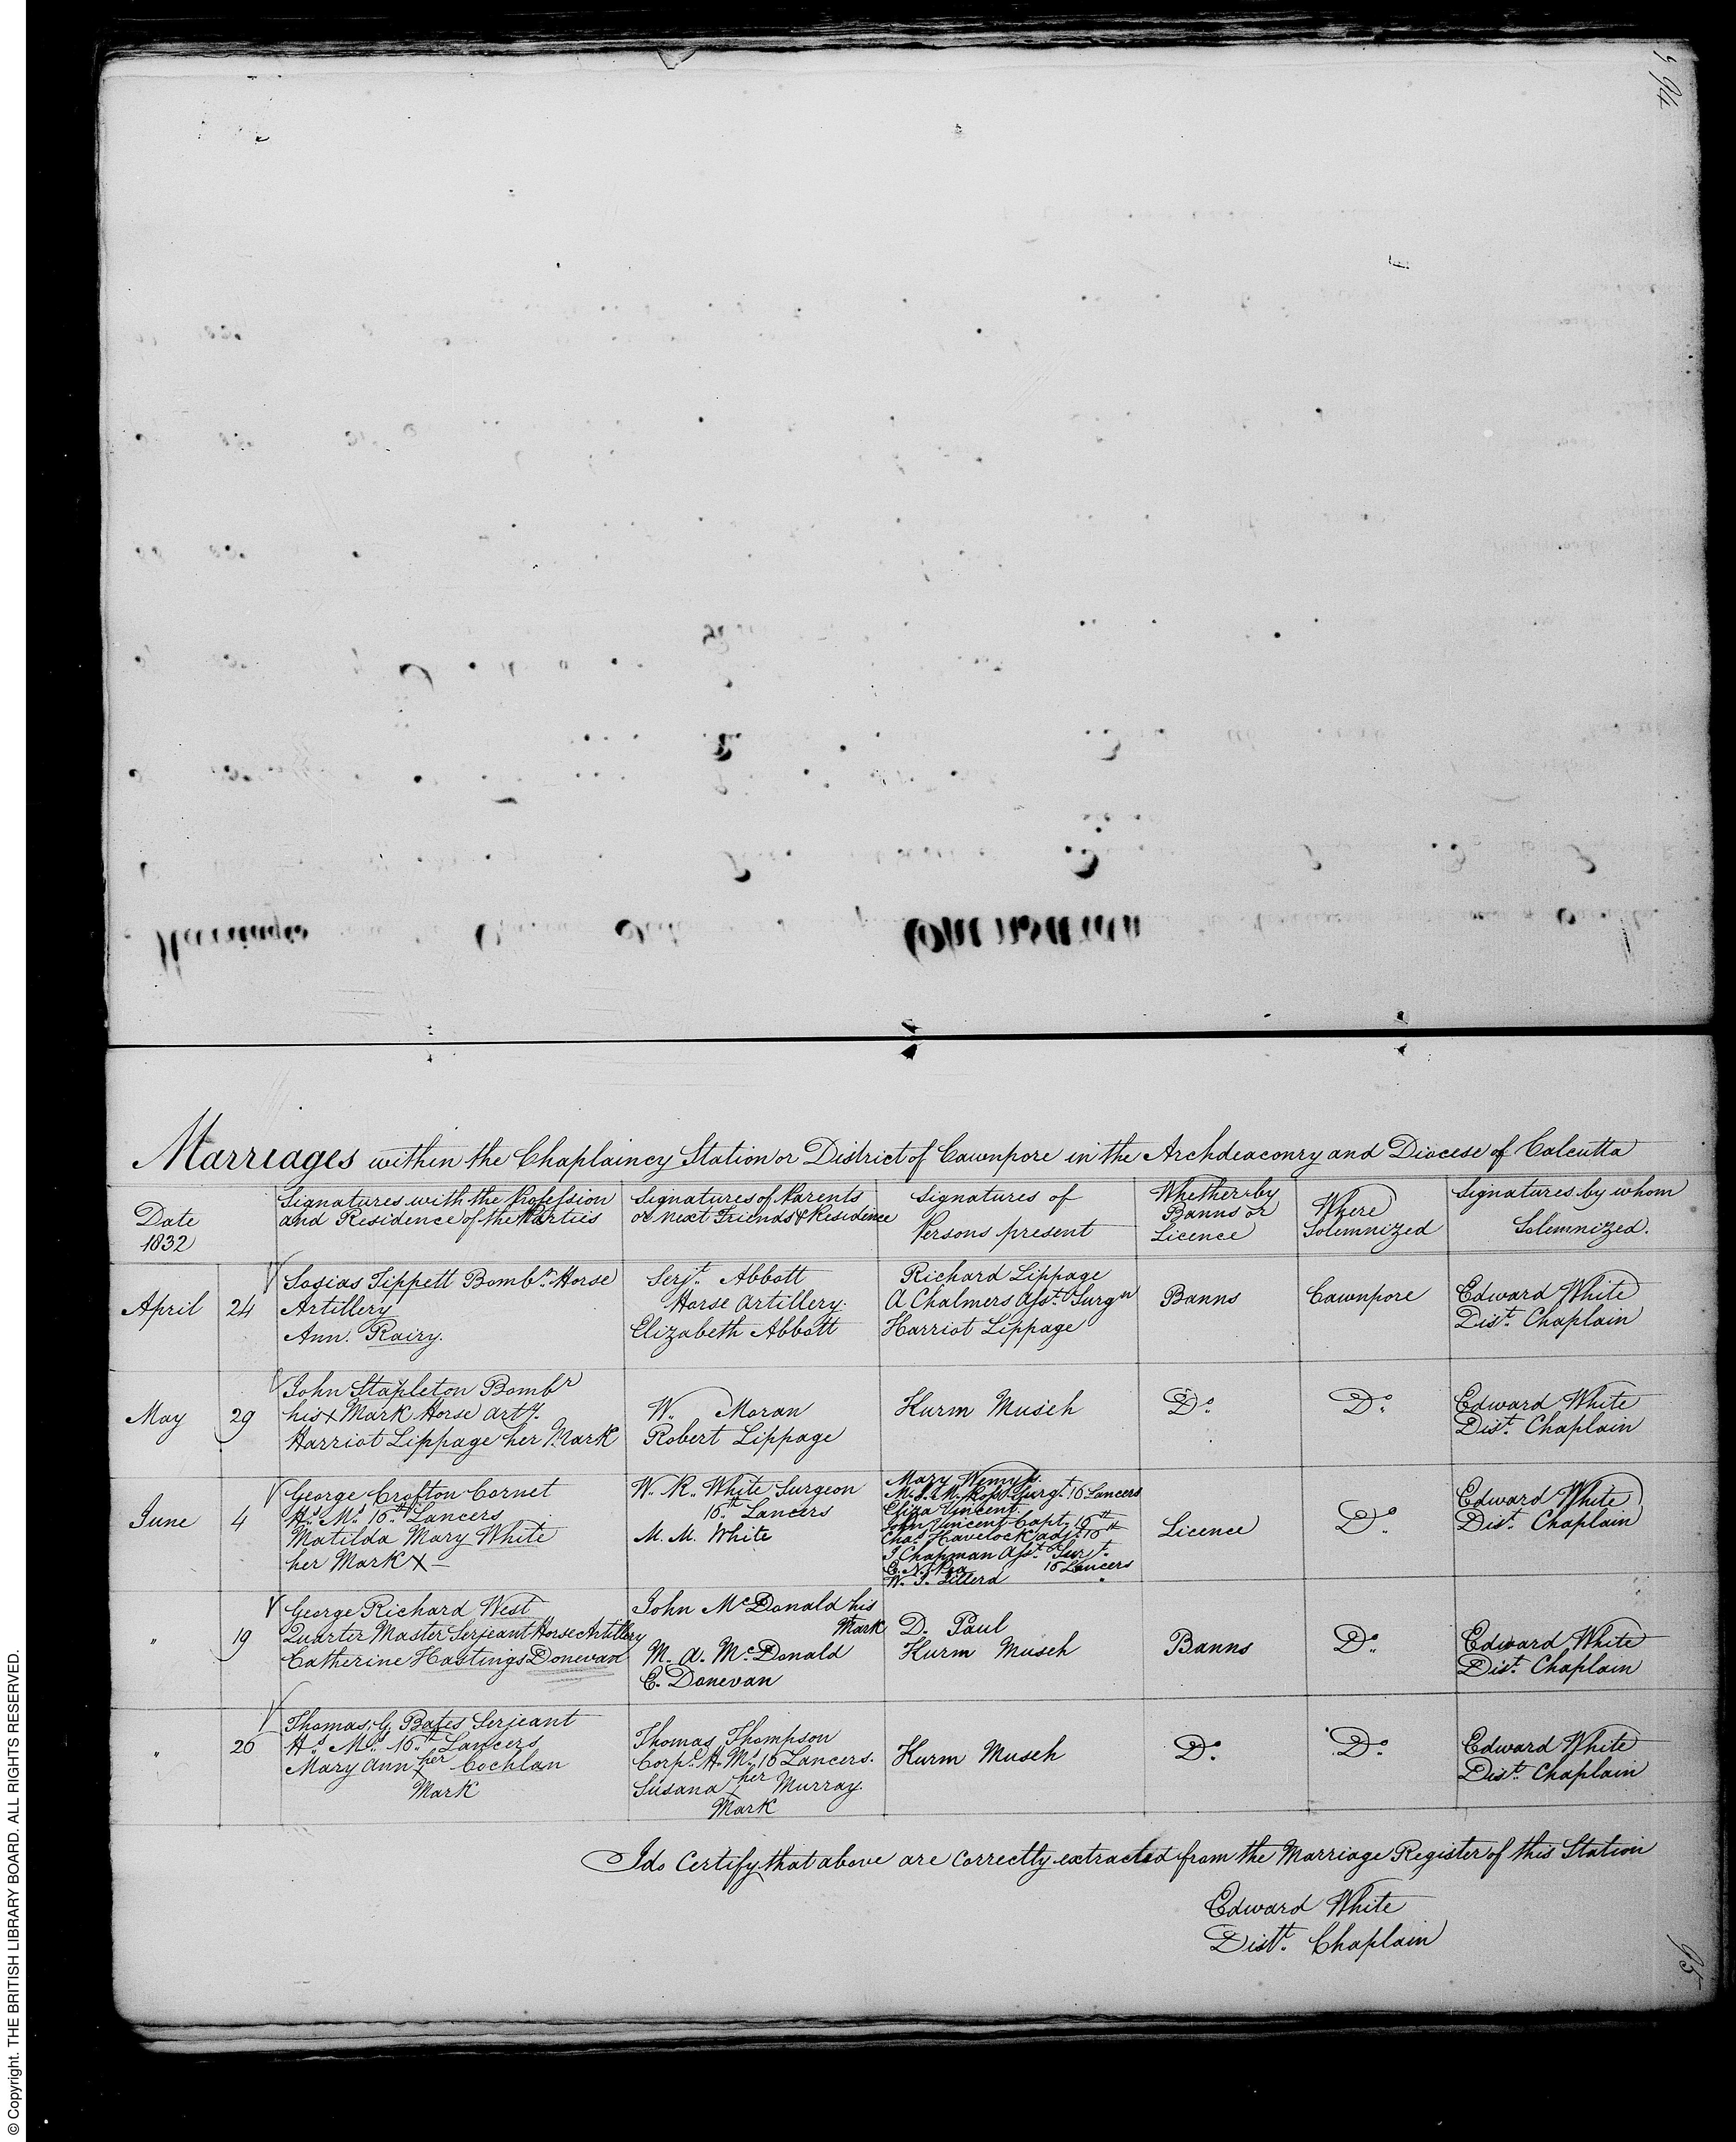 94
Marriages within the Chaplaincy Station or District of Cawnpore in the Archdeaconry and Diocese of Calcutta
Date
1832
Signatures with the Profession
and Residence of the Parties
Signatures of Parents
or next Friends & Residence
Signatures of
Persons present
Whether by
Banns or
Licence
Where
Solemnized
Signatures by whom
Solemnized.
April 24
Josias Tippett Bombr. Horse
Artillery
Ann. Rairy.
Serjt. Abbott
Horse Artillery.
Elizabeth Abbott
Richard Lippage
A Chalmers Asst. Surgn
Harriot Lippage
Banns
Cawnpore
Edward White
Dist. Chaplain
May 29
John Stapleton Bombr
his x Mark Horse Arty.
Harriot Lippage her Mark
W. Moran
Robert Lippage
Kurm Museh
Do.
Do.
Edward White
Dist. Chaplain
June 4
George Crofton Cornet
Hs. Ms. 16th Lancers
Matilda Mary White
her Mark x
W. R. White Surgeon
16th Lancers
M. M. White
Mary Wemyss.
Ross Surgt. 16 Lancers
Eliza Vincent
John Vincent Capt. 16th
Chas. Havelock adjt. 16th
J Chapman Asst. Surt.
16 Lancers
Licence
Do.
Edward White
Dist. Chaplain
" 19
George Richard West
Quarter Master Serjeant Horse Artillery
Catherine Hastings Donevan
John McDonald his
Mark
M. A. McDonald
C. Donevan
D. Paul
Kurm Museh
Banns
Do.
Edward White
Dist. Chaplain
" 26
Thomas G. Bates Serjeant
Hs. Ms. 16th Lancers
Mary Ann her x Cochlan
Mark
Thomas Thompson
Corpl. H. M. 16 Lancers.
Susana her Murray.
Mark
Kurm Museh
Do.
Do.
Edward White
Dist. Chaplain
I do Certify that above are correctly extracted from the Marriage Register of this Station
Edward White
Distt. Chaplain
95
© Copyright. THE BRITISH LIBRARY BOARD. ALL RIGHTS RESERVED.